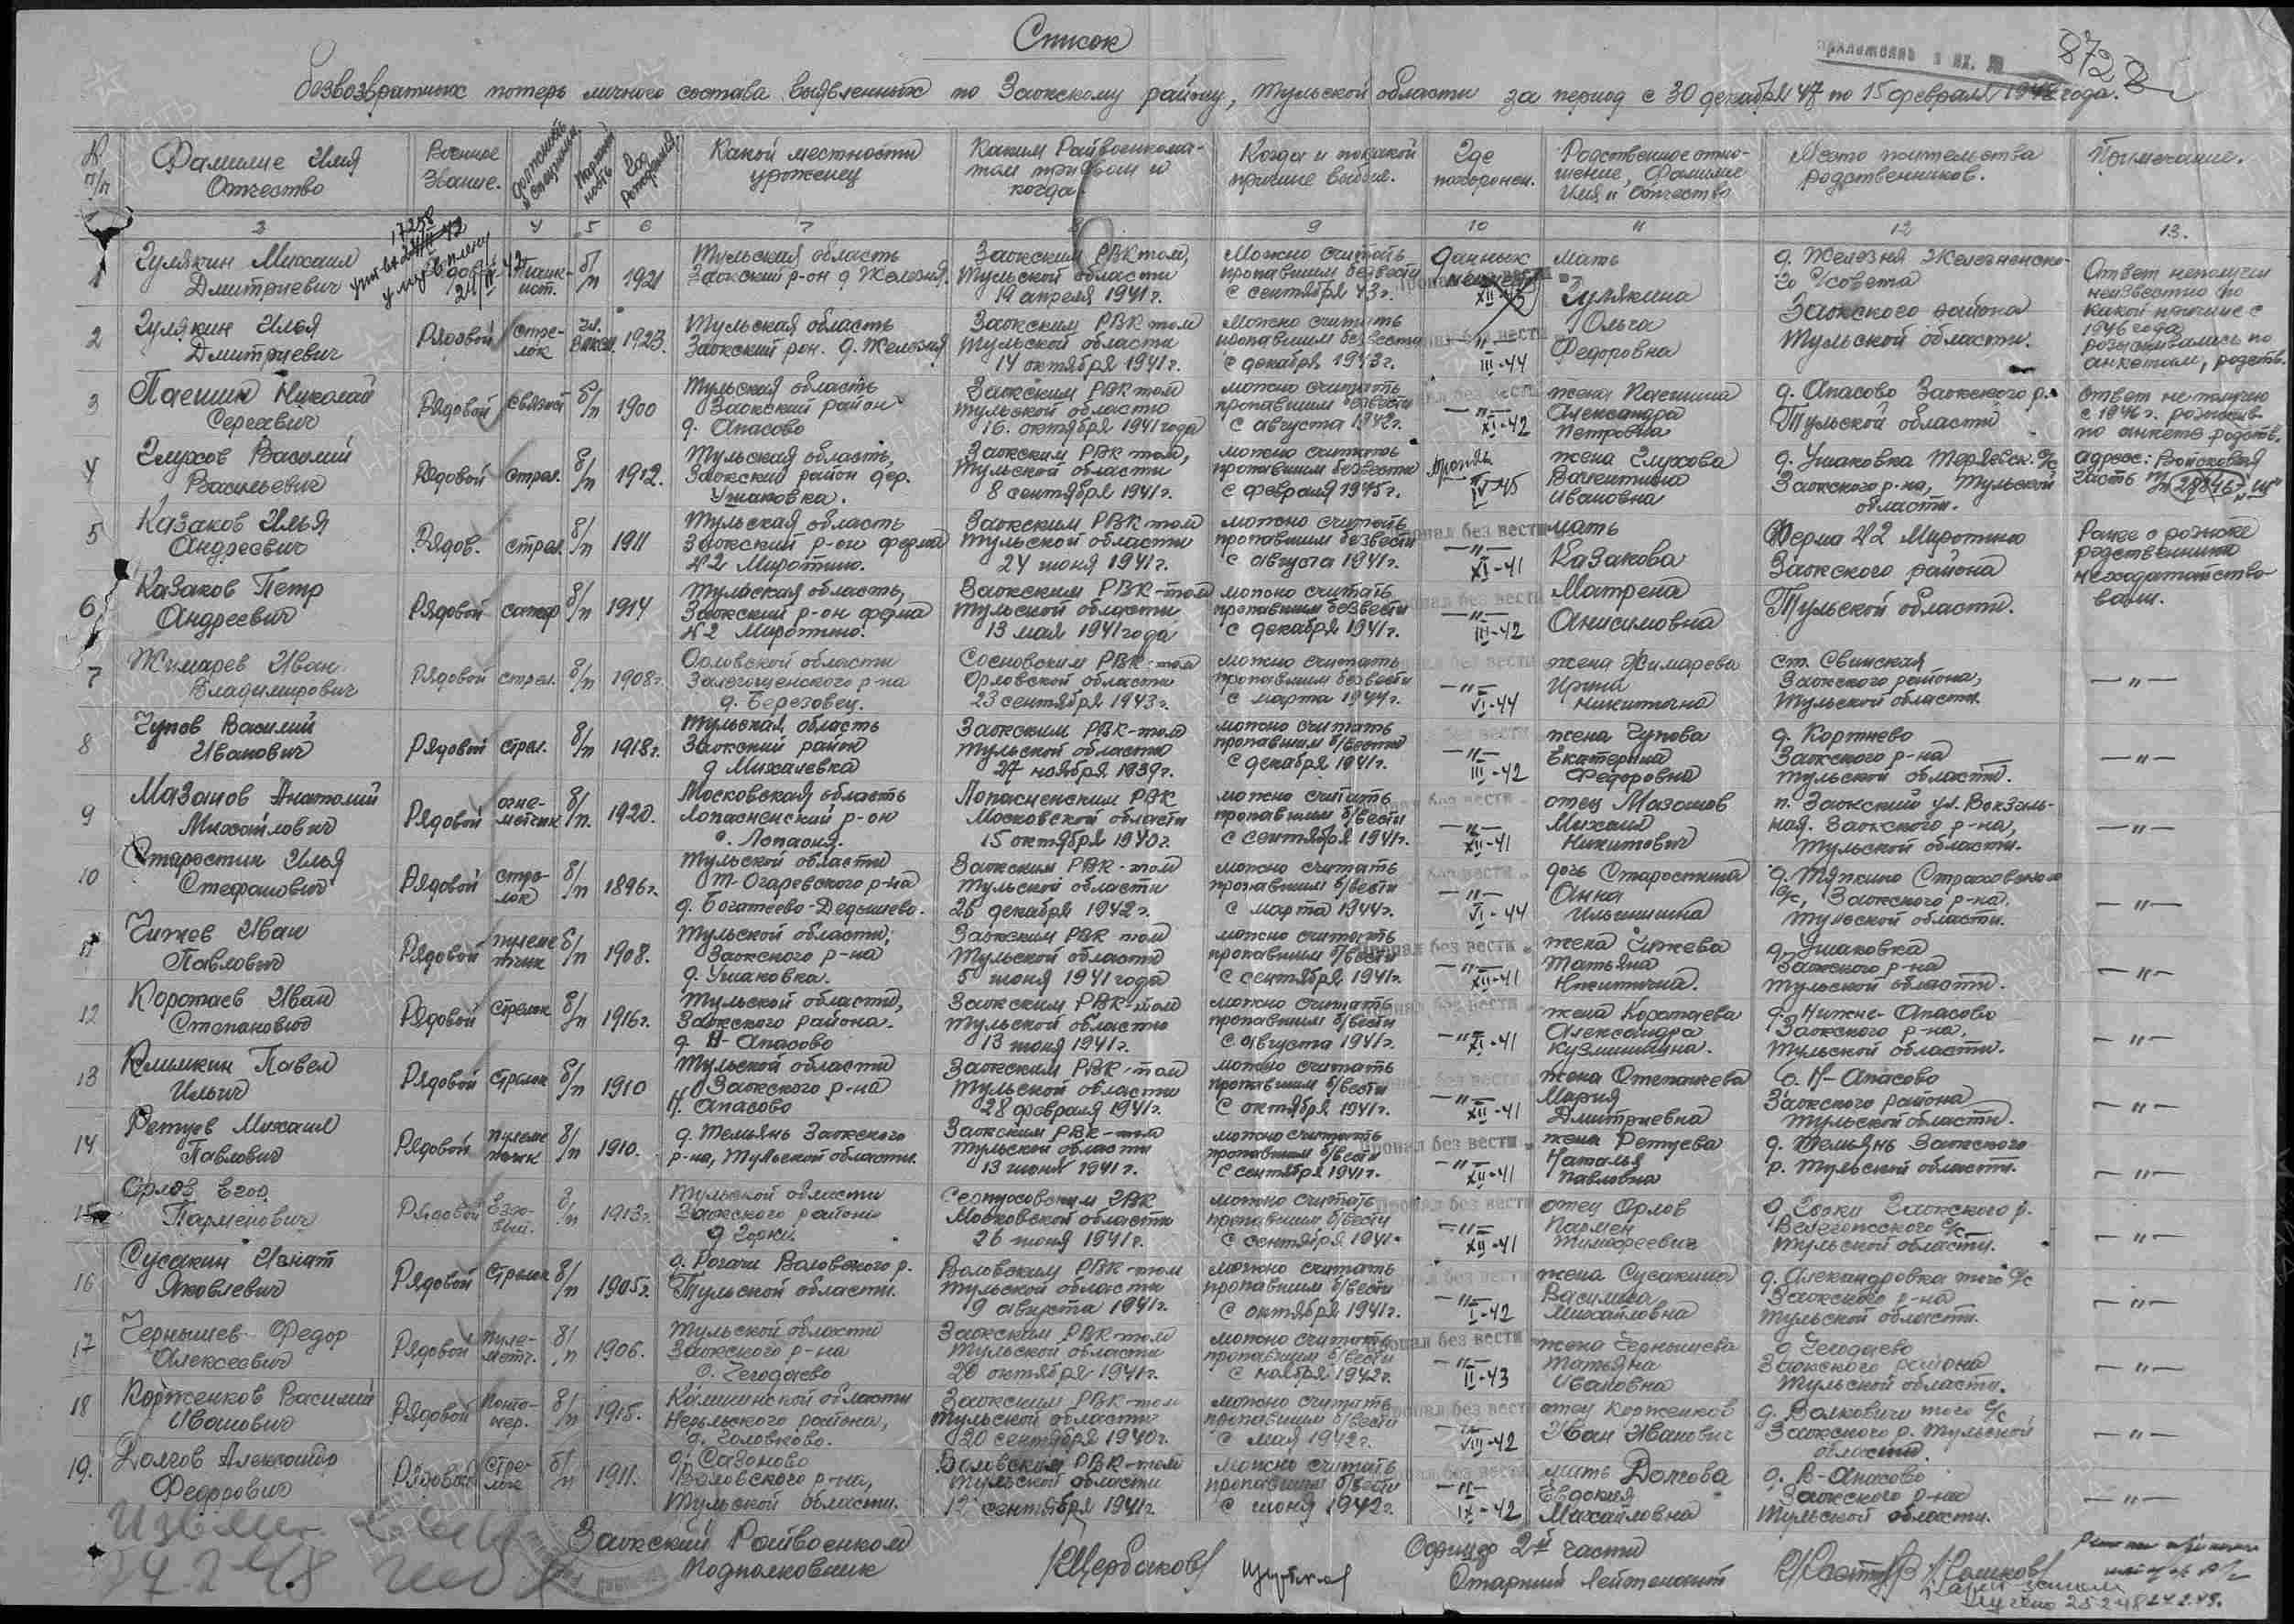 Список
приложение к вх. №
8728
безвозвратных потерь личного состава выявленных по Заокскому району, Тульской области за период с 30 декабря 47 по 15 февраля 1948 года.
№ п/п
Фамилие Имя Отчество
Военное звание.
Должность и специальн.
Партийность
Год рождения.
Какой местности уроженец
Каким Райвоенкоматом призван и когда
Когда и по какой причине выбыл.
Где похоронен.
Родственное отношение, Фамилие Имя и Отчество
Место жительства родственников.
Примечание.
2 4 5 6 7 8 9 10 11 12 13.
17258
1 Гулякин Михаил Дмитриевич б/п 1921
Тульская область Заокский р-он д Железня.
Заокским РВКтом, Тульской области 19 апреля 1941г.
Можно считать пропавшим безвести с сентября 43г.
Данных
мать Гулякина Ольга Федоровна
д. Железня Железненского с/совета Заокского района Тульской области.
Ответ неполучен неизвестно по какой причине с 1946 года розыскивались по анкетам, родств.
2 Гулякин Илья Дмитриевич Рядовой стрелок 1923.
Тульская область Заокский рон. д. Железня
Заокским РВК том Тульской области 14 октября 1941г.
Можно считать пропавшим безвести с декабря 1943г.
—"— III-44
3 Паешин Николай Сергеевич Рядовой связист б/п 1900
Тульская область Заокский район д. Апасово
Заокским РВК том Тульской области 16. октября 1941года
можно считать пропавшим безвести с августа 1942г.
—"— XI-42
жена Паешина Александра Петровна
д. Апасово Заокского р. Тульской области
ответ не получен с 1946г. розыскив. по анкете родств.
4 Глухов Василий Васильевич Рядовой стрел. б/п 1912.
Тульская область, Заокский район дер. Ушаковка.
Заокским РВК том, Тульской области 8 сентября 1941г.
можно считать пропавшим безвести с февраля 1945г.
жена Глухова Валентина Ивановна
д. Ушаковка Теряевск. с/с Заокского р-на, Тульской области.
адрес: Войсковая часть п/п 28846 „Ш"
5 Казаков Илья Андреевич Рядов. стрел. б/п 1911
Тульская область Заокский р-он ферма №2 Миротино.
Заокским РВК том Тульской области 24 июня 1941г.
можно считать пропавшим безвести с августа 1941г.
пропал без вести
—"— XI-41
мать Казакова Матрена Анисимовна
Ферма №2 Миротино Заокского района Тульской области.
Ранее о розыске родственники неходатайствовали.
6 Казаков Петр Андреевич Рядовой сапер б/п 1914
Тульская область, Заокский р-он ферма №2 Миротино.
Заокским РВК-том Тульской области 13 мая 1941года
можно считать пропавшим безвести с декабря 1941г.
—"— III-42
7 Жимарев Иван Владимирович Рядовой стрел. б/п 1908г.
Орловской области Залегощенского р-на д. Березовец.
Сосновским РВК-том Орловской области 23 сентября 1943г.
можно считать пропавшим безвести с марта 1944г.
—"— VI-44
жена Жимарева Ирина Никитична
ст. Свинская Заокского района, Тульской области.
—"—
8 Чупов Василий Иванович Рядовой стрел. б/п 1918г.
Тульская область Заокский район д Михалевка
Заокским РВК-том Тульской области 27 ноября 1939г.
можно считать пропавшим б/вести с декабря 1941г.
—"— III-42
жена Чупова Екатерина Федоровна
д. Кортнево Заокского р-на Тульской области.
—"—
9 Мазанов Анатолий Михайлович Рядовой огнеметчик б/п. 1920.
Московская область Лопасненский р-он с. Лопасня.
Лопасненским РВК Московской области 15 октября 1940г.
можно считать пропавшим б/вести с сентября 1941г.
—"— XII-41
отец Мазанов Михаил Никитович
п. Заокский ул. Вокзальная. Заокского р-на, Тульской области.
—"—
10 Старостин Илья Стефанович Рядовой стрелок б/п 1896г.
Тульской области Т-Огаревского р-на д. Богатеево-Дедышево.
Заокским РВК-том Тульской области 26 декабря 1942г.
можно считать пропавшим б/вести с марта 1944г.
—"— VI-44
дочь Старостина Анна Ильинишна
д. Тяпкино Страховского с/с, Заокского р-на. Тульской области.
—"—
11 Чижев Иван Павлович Рядовой пулеметчик б/п 1908.
Тульской области, Заокского р-на д. Ушаковка.
Заокским РВК том Тульской области 5 июня 1941года
можно считать пропавшим б/вести с сентября 1941г.
—"— XII-41
жена Чижева Татьяна Никитична.
д. Ушаковка Заокского р-на Тульской области.
—"—
12 Коротаев Иван Степанович Рядовой стрелок б/п 1916г.
Тульской области, Заокского района. д. Н-Апасово
Заокским РВК-том Тульской области 13 июня 1941г.
можно считать пропавшим б/вести с августа 1941г.
—"— XI-41
жена Коротаева Александра Кузминична.
д. Нижне-Апасово Заокского р-на. Тульской области.
—"—
13 Климкин Павел Ильич Рядовой стрелок б/п 1910
Тульской области Заокского р-на Н. Апасово
Заокским РВК-том Тульской области 28 февраля 1941г.
можно считать пропавшим б/вести с октября 1941г.
—"— XII-41
жена Степанчева Мария Дмитриевна
с. Н-Апасово Заокского района Тульской области.
—"—
14 Ретуев Михаил Павлович Рядовой пулеметчик б/п 1910.
д. Темьянь Заокского р-на, Тульской области.
Заокским РВК-том Тульской области 13 июня 1941г.
можно считать пропавшим б/вести с сентября 1941г.
—"— XII-41
жена Ретуева Наталья Павловна
д. Темьянь Заокского р. Тульской области.
—"—
15 Орлов Егор Парменович Рядовой Ездовый. б/п 1913г.
Тульской области Заокского района д Горки.
Серпуховским ГВК Московской области 26 июня 1941г.
можно считать пропавшим б/вести с сентября 1941.
—"— XII-41
отец Орлов Пармен Тимофеевич
с. Горки Заокского р. Велегожского с/с Тульской области.
—"—
16 Сусакин Игнат Яковлевич Рядовой Стрелок б/п 1905г.
д. Рогачи Воловского р. Тульской области.
Воловским РВК-том Тульской области 9 августа 1941г.
можно считать пропавшим б/вести с октября 1941г.
—"— I-42
жена Сусакина Василиса Михайловна
д. Александровка того с/с Заокского р-на Тульской области.
—"—
17 Чернышев Федор Алексеевич Рядовой пулеметч. б/п 1906.
Тульской области Заокского р-на с. Чегодаево
Заокским РВК-том Тульской области 20 октября 1941г.
можно считать пропавшим б/вести с ноября 1942г.
—"— II-43
жена Чернышева Татьяна Ивановна
д Чегодаево Заокского района Тульской области.
—"—
18 Корженков Василий Иванович Рядовой б/п 1915.
Калининской области Нерльского района, д. Головково.
Заокским РВК-том Тульской области 20 сентября 1940г.
можно считать пропавшим б/вести с мая 1942г.
—"— VIII-42
отец Корженков Иван Иванович
д. Волковичи того с/с Заокского р. Тульской области.
—"—
19. Долгов Александр Федорович Рядовой стрелок б/п 1911.
д. Сазоново Воловского р-на, Тульской области.
Воловским РВК-том Тульской области 12 сентября 1941г.
можно считать пропавшим б/вести с июня 1942г.
—"— IX-42
мать Долгова Евдокия Михайловна
с. В-Апасово Заокского р-на Тульской области.
—"—
Заокский Райвоенком
Подполковник
Щербаков
Офицер 2й части
Старший лейтенант
24.2.48